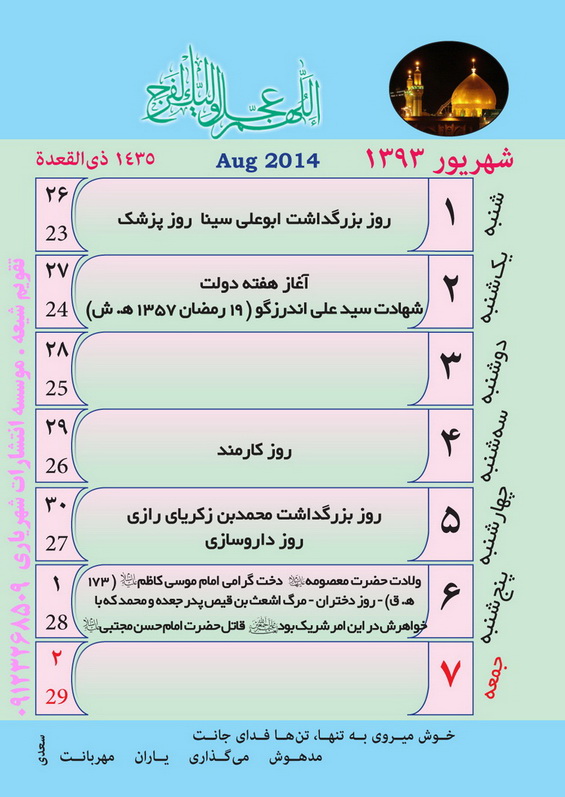 اللّهم عجّل لولیّک الفرج
شهریور ۱۳۹۳
Aug 2014
۱۴۳۵ ذی‌القعدة
شنبه
۱
روز بزرگداشت ابوعلی سینا روز پزشک
۲۶
23
یک‌شنبه
۲
آغاز هفته دولت
شهادت سید علی اندرزگو ( ۱۹ رمضان ۱۳۵۷ هـ. ش)
۲۷
24
دوشنبه
۳
۲۸
25
سه‌شنبه
۴
روز کارمند
۲۹
26
چهارشنبه
۵
روز بزرگداشت محمدبن زکریای رازی
روز داروسازی
۳۰
27
پنج‌شنبه
۶
ولادت حضرت معصومه دخت گرامی امام موسی کاظم ( ۱۷۳
هـ. ق) - روز دختران - مرگ اشعث بن قیص پدر جعده و محمد که با
خواهرش در این امر شریک بود قاتل حضرت امام حسن مجتبی
۱
28
جمعه
۷
۲
29
تقویم شیعه . موسسه انتشارات شهریاری ۰۹۱۲۳۲۶۸۵۰۹
خوش میروی به تنها، تن‌ها فدای جانت
مدهوش می‌گذاری یاران مهربانت
سعدی